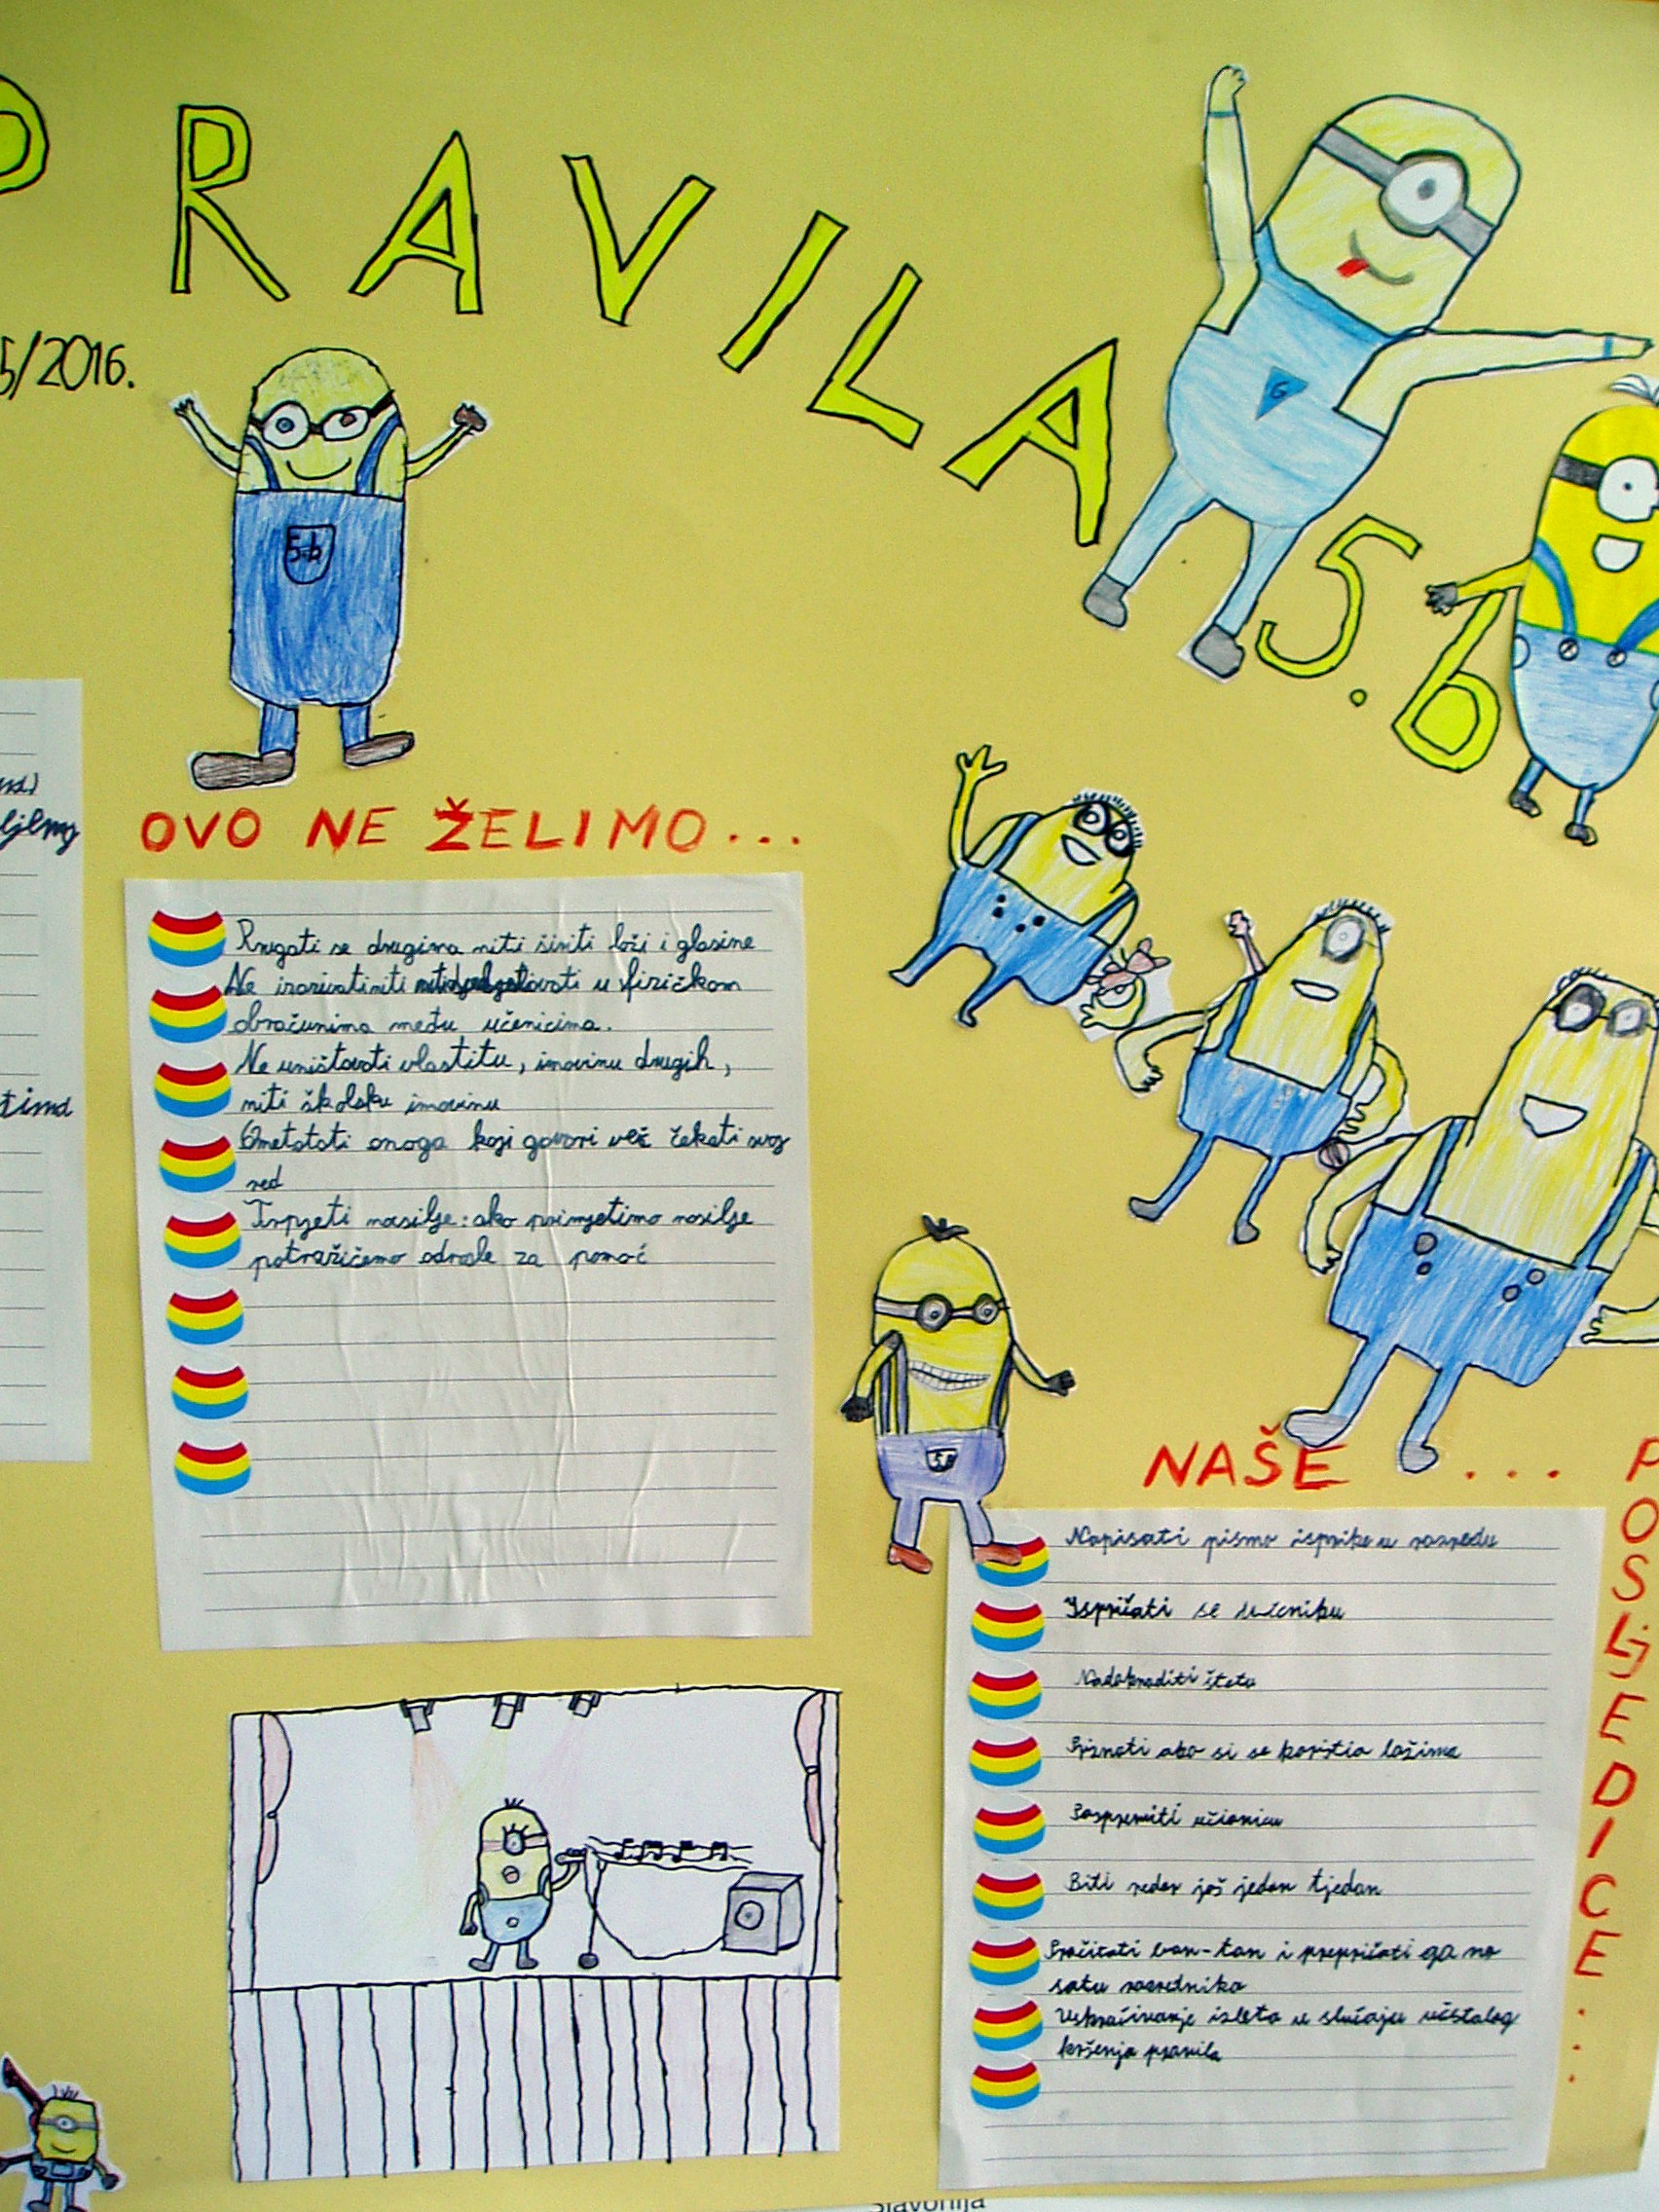 PRAVILA
5.b
5/2016.
5.b
G
OVO NE ŽELIMO...
Rugati se drugima niti širiti laži i glasine
Ne izazivati niti u fizičkom
obračunima među učenicima.
Ne uništavati vlastitu, imovinu drugih,
niti školsku imovinu
Ometati onoga koji govori već čekati svoj
red
Trpjeti nasilje: ako primjetimo nasilje
potražićemo odrasle za pomoć
5.B
NAŠE ... POSLJEDICE...
Napisati pismo isprike u razredu
Ispričati se učeniku
Nadoknaditi štetu
Priznati ako si se koristio lažima
Pospremiti učionicu
Biti redar još jedan tjedan
Pročitati bon-ton i prepričati ga na
satu razrednika
Uskraćivanje izleta u slučaju učestalog
kršenja pravila
tima
Slavonija